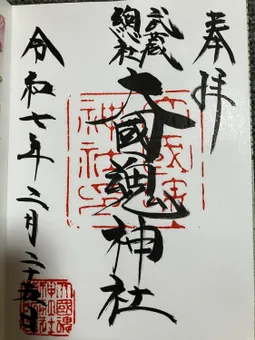 奉拝
武蔵
總社
大國魂神社
令和七年二月二十五日